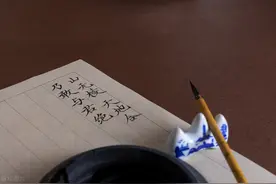 山无棱天地合
乃敢与君绝